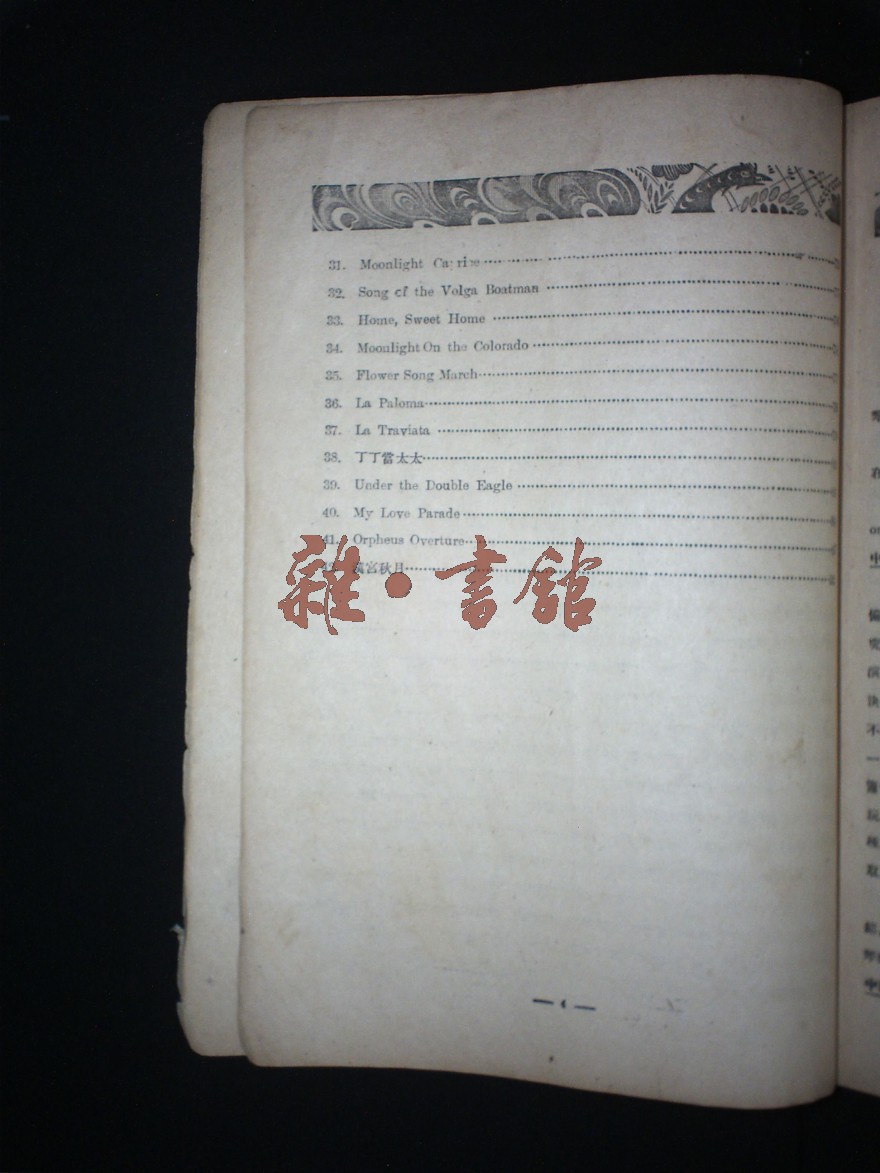 31. Moonlight
32. Song of the Volga Boatman
33. Home, Sweet Home
34. Moonlight On the Colorado
35. Flower Song March
36. La Paloma
37. La Traviata
38. 丁丁當太太
39. Under the Double Eagle
40. My Love Parade
41. Orpheus Overture
宮秋月
雜·書館